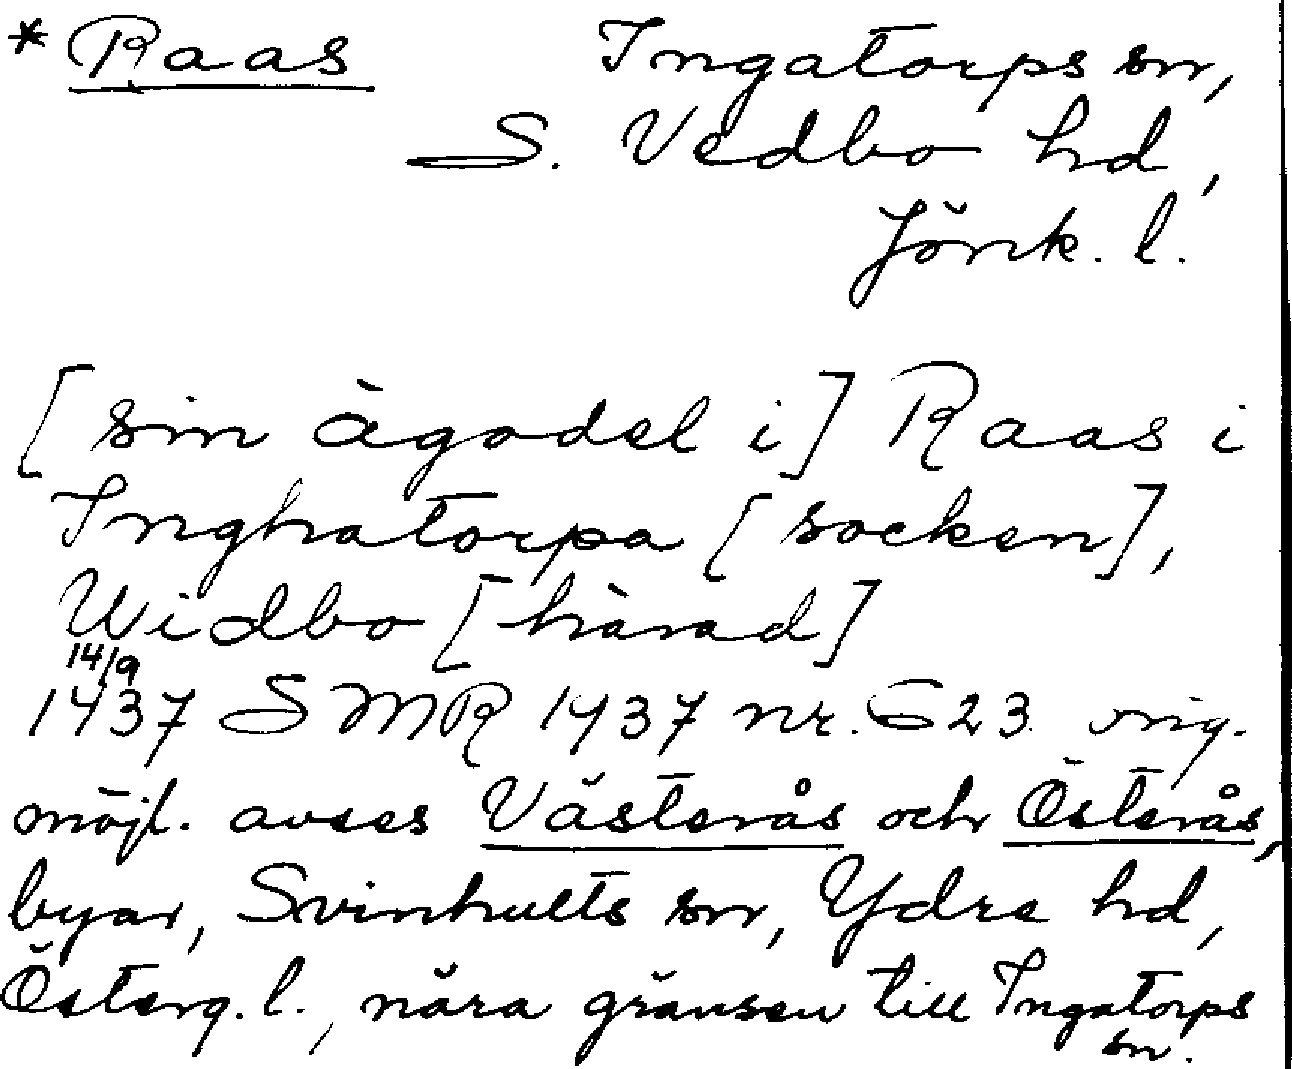 * Raas Ingatorps sn,
S. Vedbo hd,
Jönk. l.
[sin ägodel i] Raas i
Inghatorpa [socken],
Widbo [härad]
14/9
1437 SMR 1437 nr. 623 orig.
möjl. avses Västerås och Österås,
byar, Svinhults sn, Ydre hd,
Österg. l., nära gränsen till Ingatorps
sn.